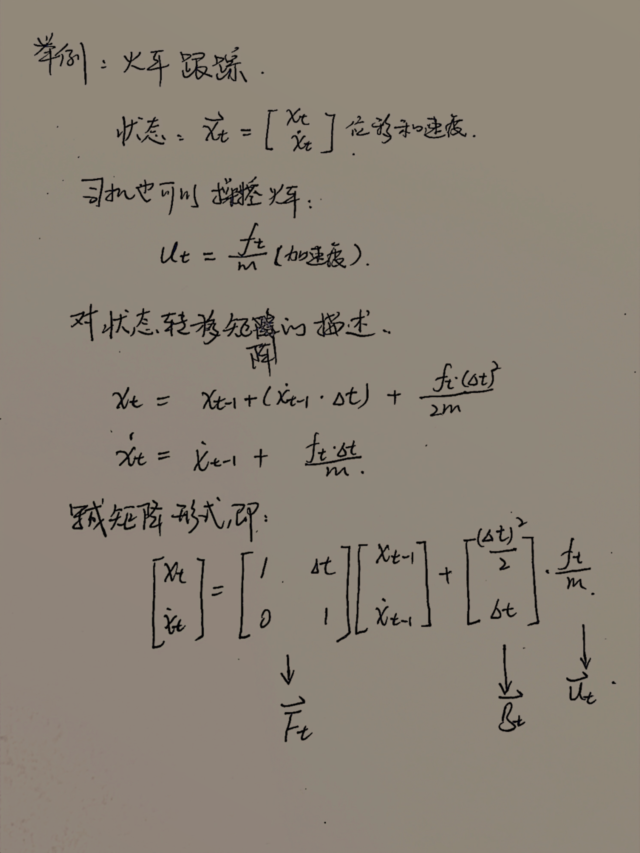 举例：火车跟踪.
状态：x⃗t = [xt ẋt] 位移和速度.
司机也可以操控火车：
ut = ft/m (加速度).
对状态转移矩阵的描述.
xt = xt-1 + (ẋt-1 · Δt) + ft·(Δt)²/2m
ẋt = ẋt-1 + ft·Δt/m.
写成矩阵形式,即：
[xt ẋt] = [1 Δt 0 1] [xt-1 ẋt-1] + [(Δt)²/2 Δt] · ft/m.
↓ ↓ ↓
F⃗t B⃗t u⃗t.